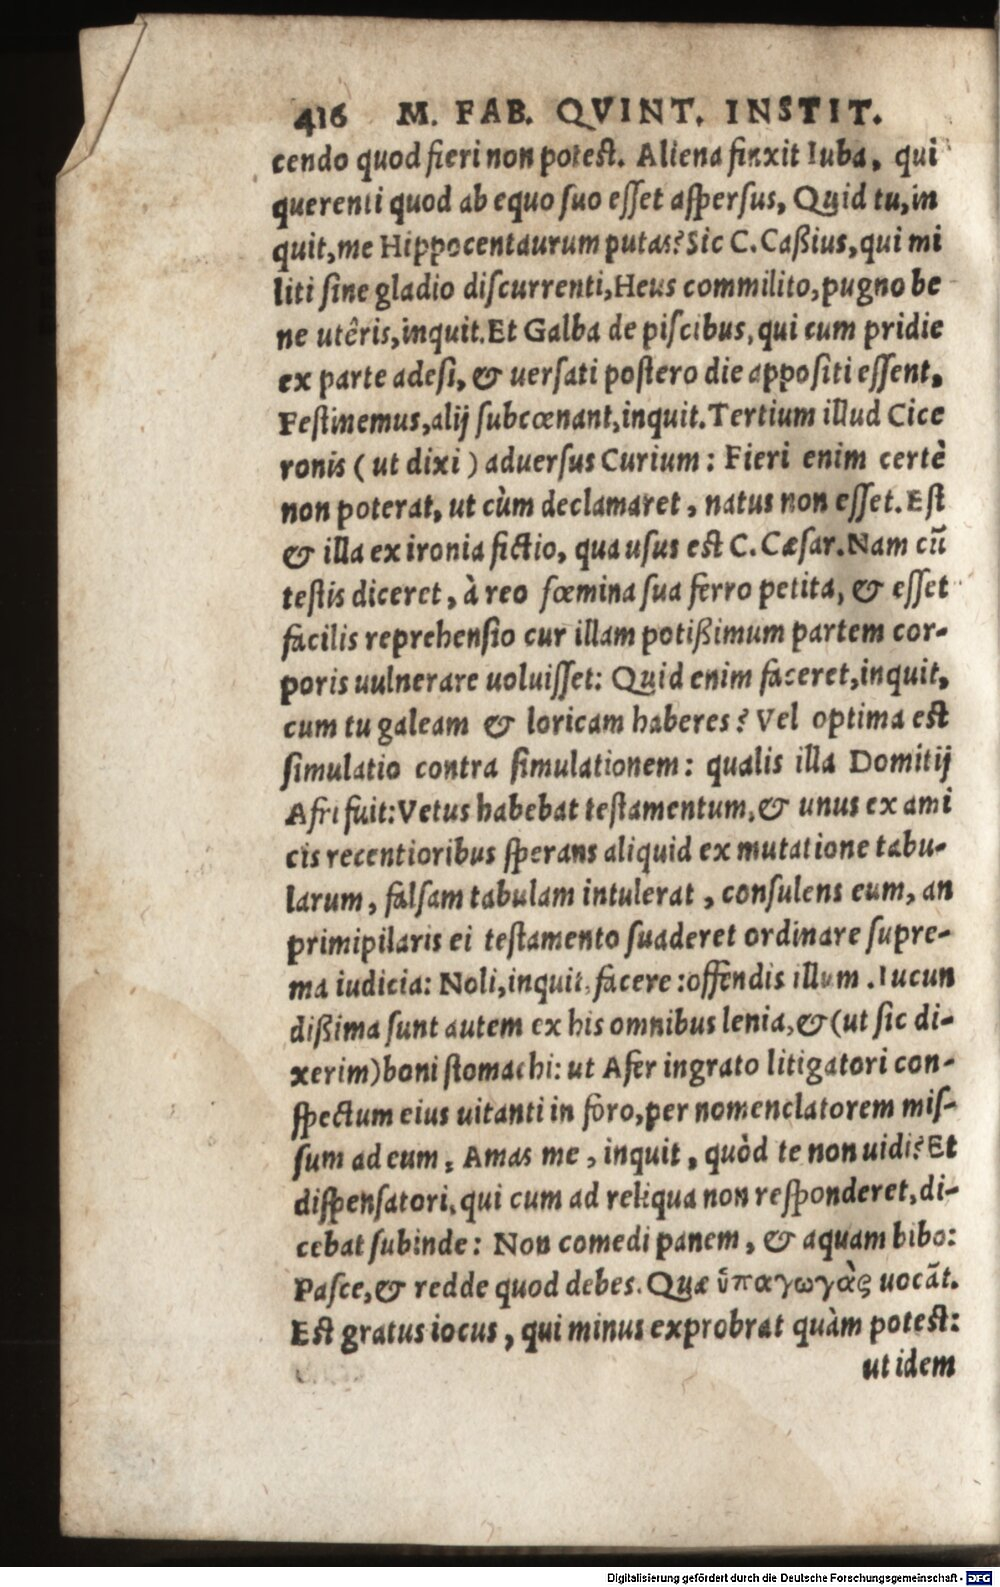 416 M. FAB. QVINT. INSTIT.
cendo quod fieri non potest. Aliena finxit Iuba, qui
querenti quod ab equo suo esset aspersus, Quid tu, in
quit, me Hippocentaurum putas? Sic C. Caßius, qui mi
liti sine gladio discurrenti, Heus commilito, pugno be
ne utêris, inquit. Et Galba de piscibus, qui cum pridie
ex parte adesi, & uersati postero die appositi essent,
Festinemus, alij subcœnant, inquit. Tertium illud Cice
ronis ( ut dixi ) aduersus Curium : Fieri enim certè
non poterat, ut cùm declamaret, natus non esset. Est
& illa ex ironia fictio, qua usus est C. Cæsar. Nam cũ
testis diceret, à reo fœmina sua ferro petita, & esset
facilis reprehensio cur illam potißimum partem cor-
poris uulnerare uoluisset: Quid enim faceret, inquit,
cum tu galeam & loricam haberes? Vel optima est
simulatio contra simulationem: qualis illa Domitij
Afri fuit: Vetus habebat testamentum, & unus ex ami
cis recentioribus sperans aliquid ex mutatione tabu-
larum, falsam tabulam intulerat, consulens eum, an
primipilaris ei testamento suaderet ordinare supre-
ma iudicia: Noli, inquit, facere: offendis illum. Iucun
dißima sunt autem ex his omnibus lenia, & (ut sic di-
xerim) boni stomachi: ut Afer ingrato litigatori con-
spectum eius uitanti in foro, per nomenclatorem mis-
sum ad eum, Amas me, inquit, quòd te non uidi? Et
dispensatori, qui cum ad reliqua non responderet, di-
cebat subinde: Non comedi panem, & aquam bibo:
Pasce, & redde quod debes. Quæ ὑπαγωγὰς uocãt.
Est gratus iocus, qui minus exprobrat quàm potest:
ut idem
Digitalisierung gefördert durch die Deutsche Forschungsgemeinschaft - DFG